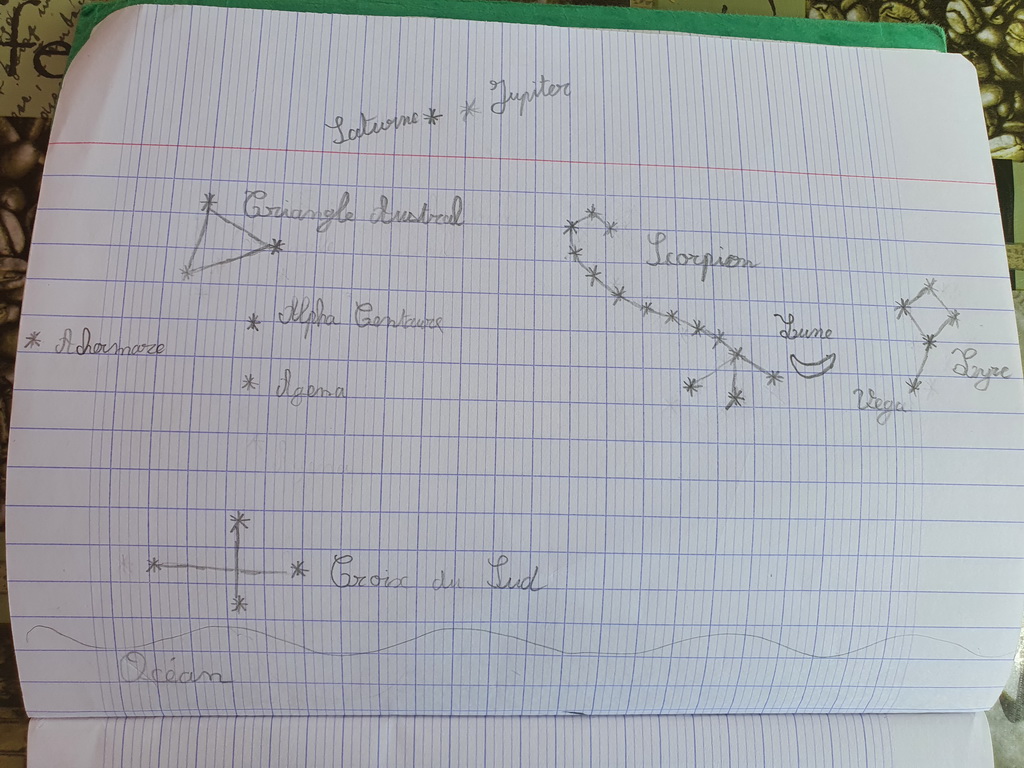 Saturne
Jupiter
Triangle Austral
Scorpion
Alpha Centaure
Lune
Lyre
Agena
Vega
Croix du Sud
Océan